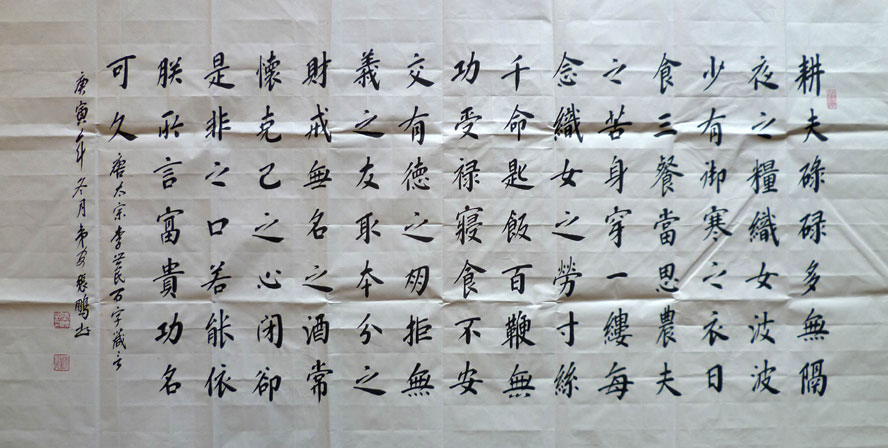 耕夫碌碌多無隔
夜之糧織女波波
少有御寒之衣日
食三餐當思農夫
之苦身穿一縷每
念織女之勞寸絲
千命匙飯百鞭無
功受禄寢食不安
交有德之朋拒無
義之友取本分之
財戒無名之酒常
懷克己之心闭卻
是非之口若能依
朕所言富貴功名
可久
唐太宗李世民百字箴言
庚寅年冬月張鵬书